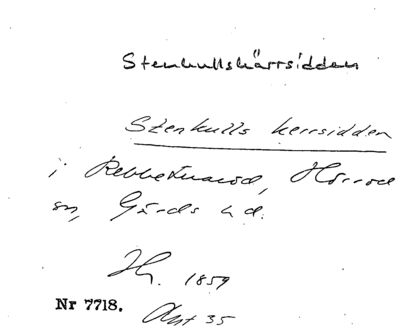 Stenkullskärrsidden
Stenkulls kerrsidden
i Rebbetuaröd, Hörröd
sn, Gärds hd.
Hy. 1859
Nr 7718. Akt 35